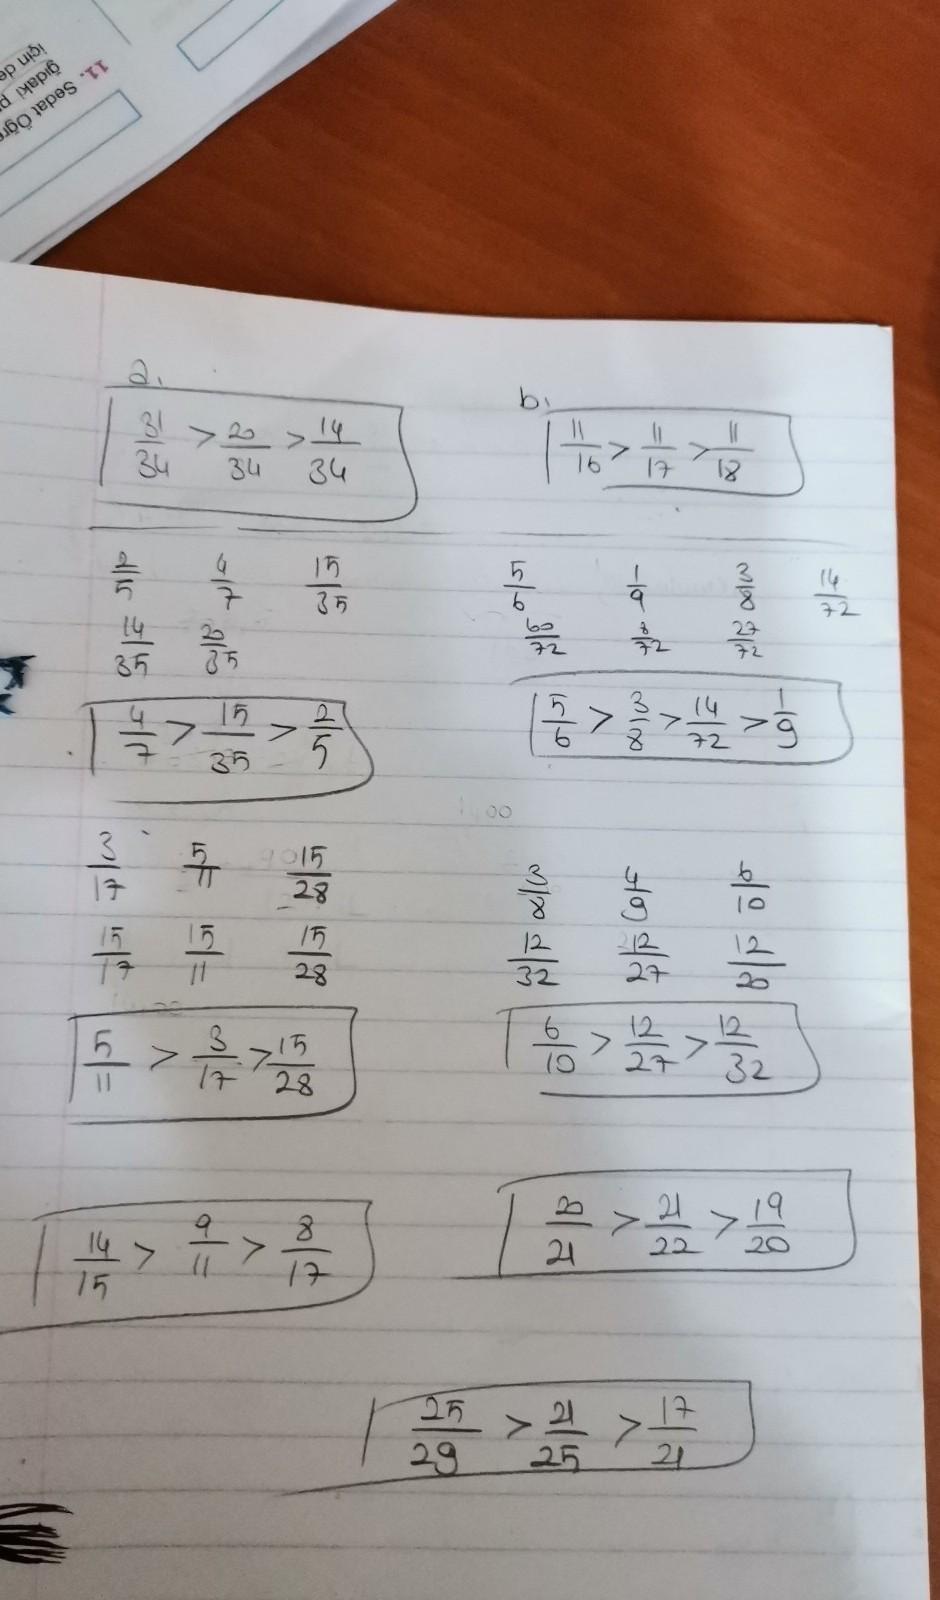 11. Sedat Öğre
ğıdaki p
için de
a.
31/34 > 20/34 > 14/34
b.
11/16 > 11/17 > 11/18
2/5 4/7 15/35
14/35 20/35
4/7 > 15/35 > 2/5
5/6 1/9 3/8 14/72
60/72 8/72 27/72
5/6 > 3/8 > 14/72 > 1/9
3/17 5/11 15/28
15/17 15/11 15/28
5/11 > 3/17 > 15/28
3/8 4/9 6/10
12/32 12/27 12/20
6/10 > 12/27 > 12/32
14/15 > 9/11 > 8/17
20/21 > 21/22 > 19/20
25/29 > 21/25 > 17/21